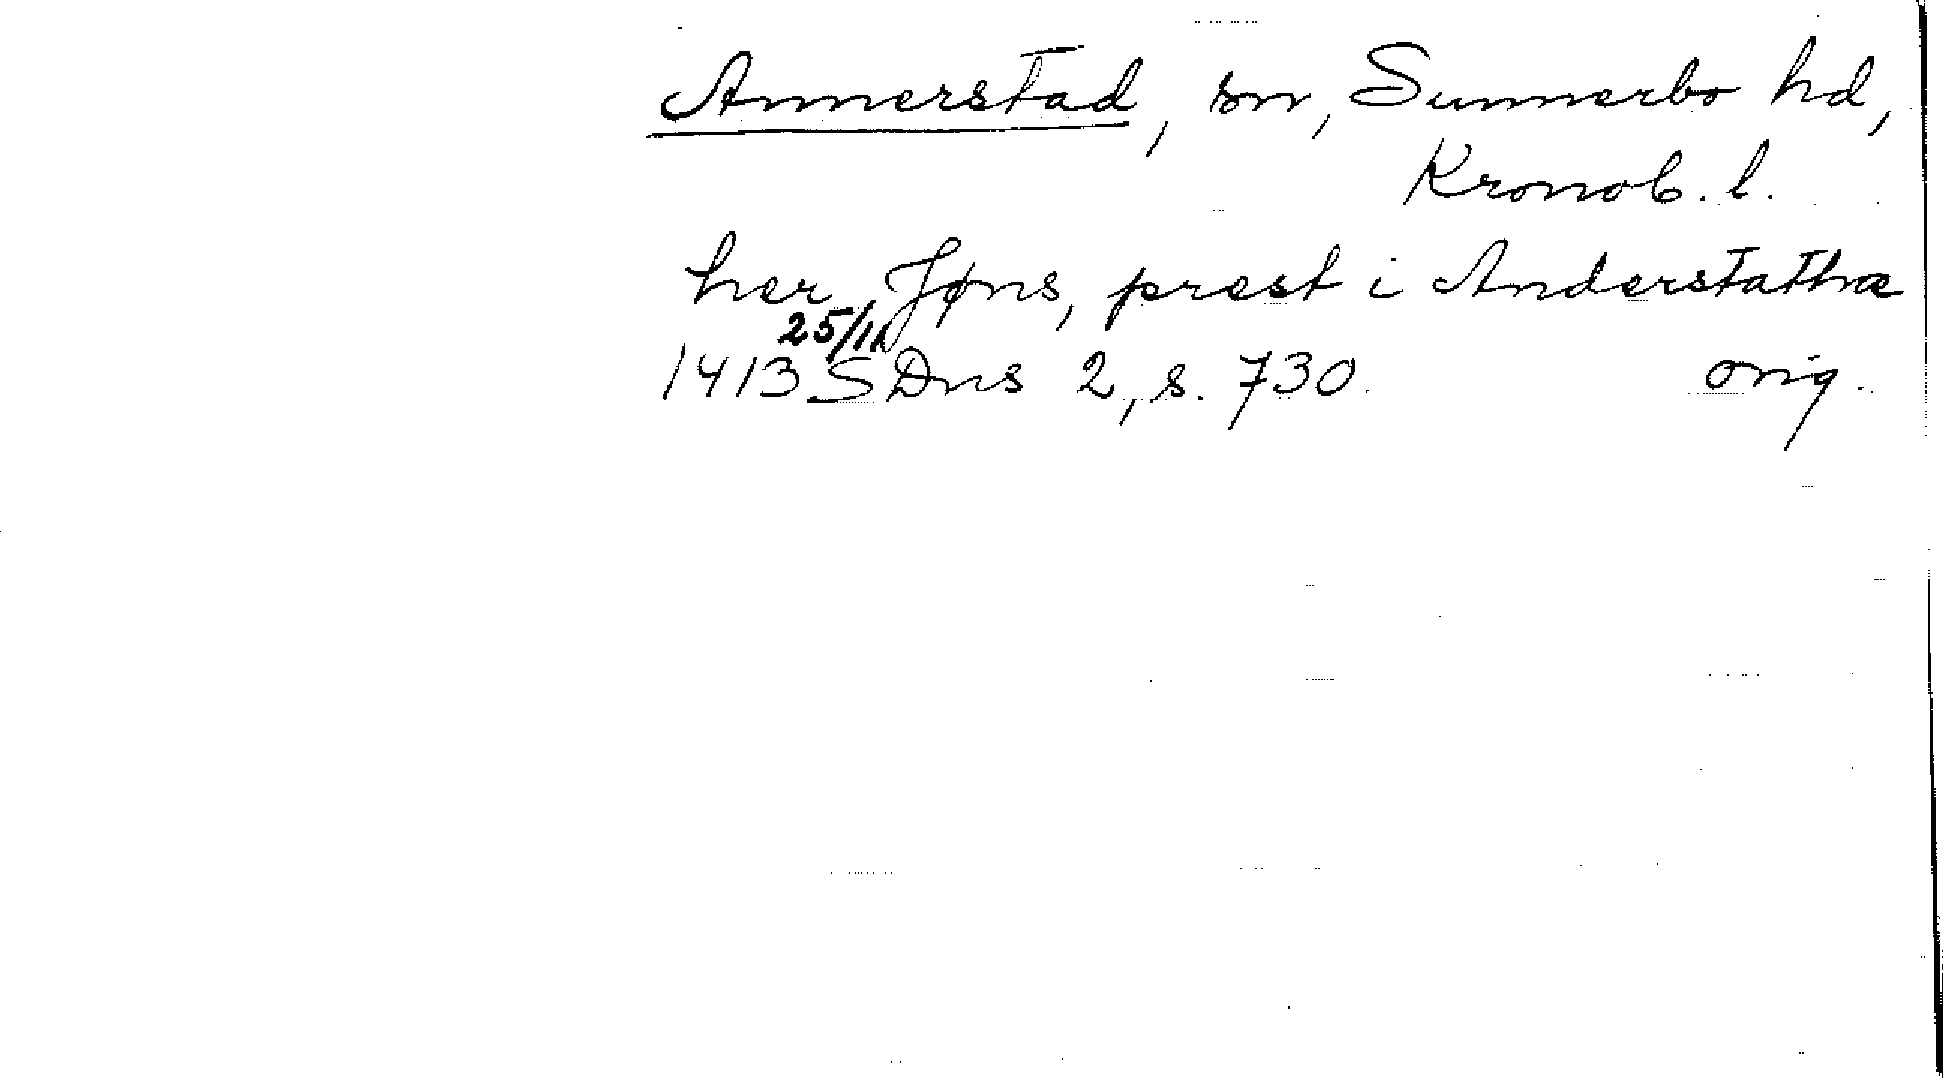 Annerstad, sn, Sunnerbo hd,
Kronob. l.
her Jøns, prest i Anderstathæ
1413 25/11 SDns 2, s. 730. orig.